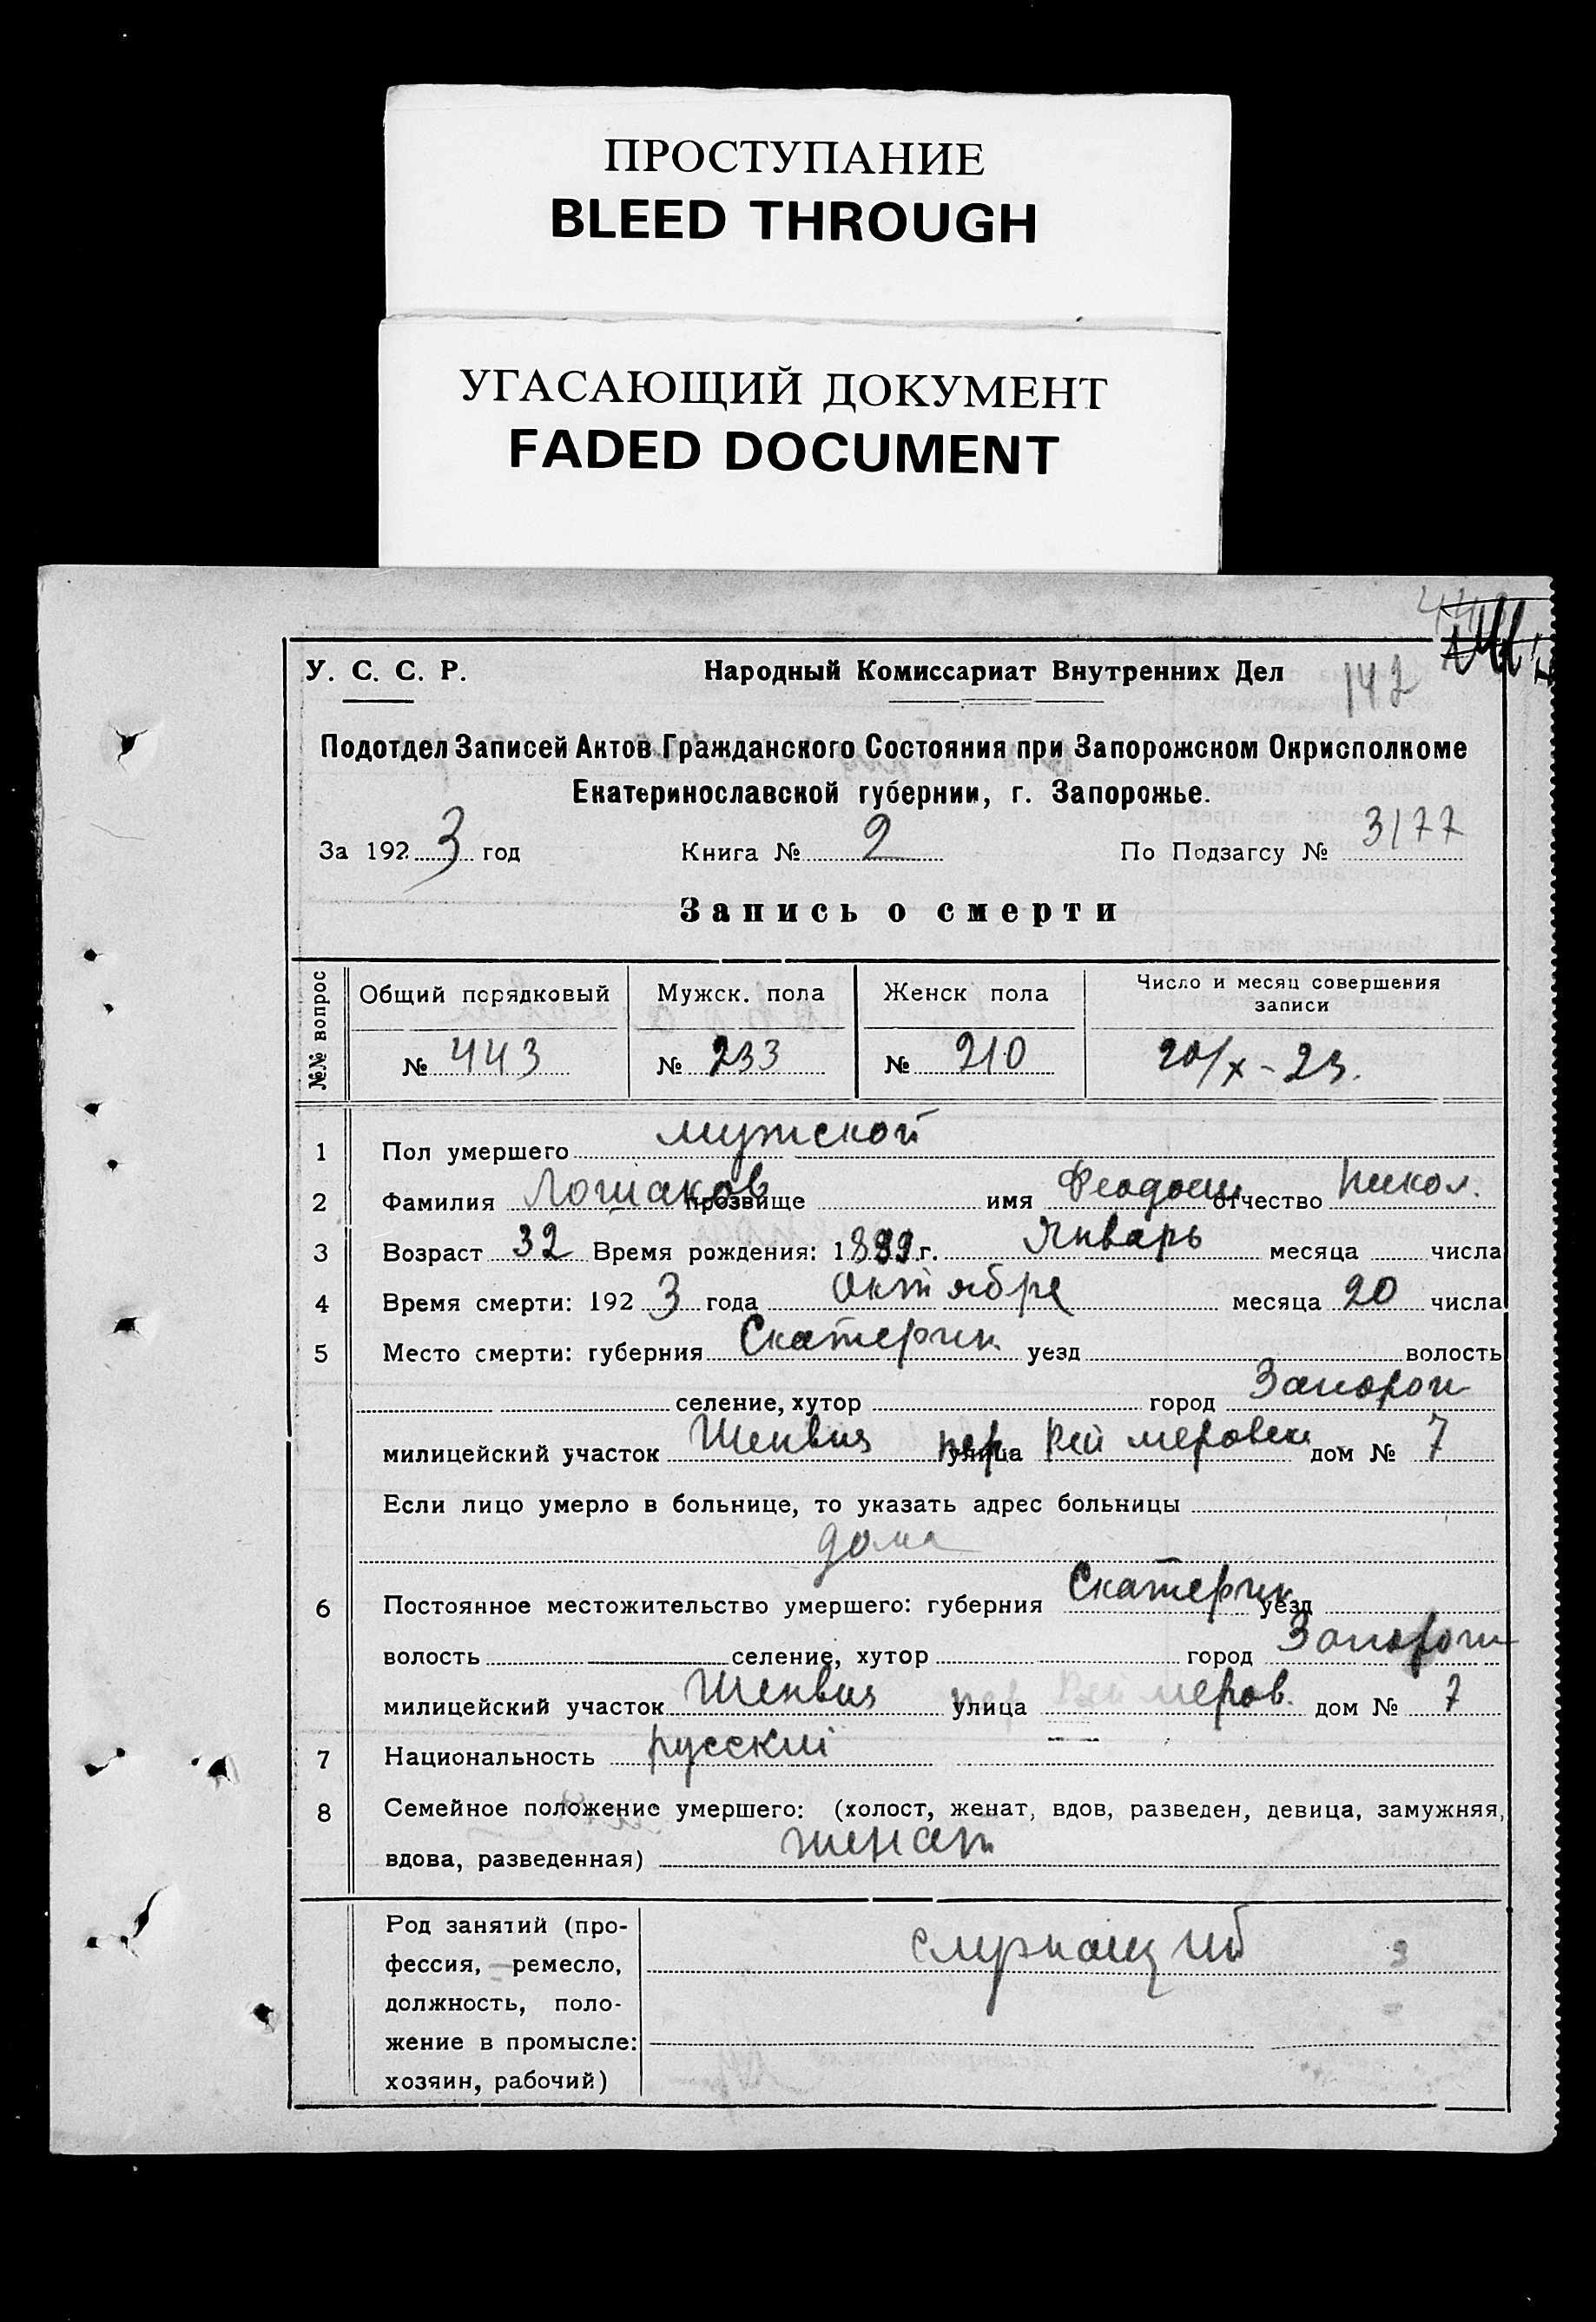 ПРОСТУПАНИЕ
BLEED THROUGH
УГАСАЮЩИЙ ДОКУМЕНТ
FADED DOCUMENT
У. С. С. Р. Народный Комиссариат Внутренних Дел 142
Подотдел Записей Актов Гражданского Состояния при Запорожском Окрисполкоме
Екатеринославской губернии, г. Запорожье.
За 1923 год Книга № 2 По Подзагсу № 3177
Запись о смерти
№№ вопрос Общий порядковый Мужск. пола Женск пола Число и месяц совершения
записи
№ 443 № 233 № 210 20/X - 23.
1 Пол умершего мужской
2 Фамилия Лошаков прозвище имя Феодосий отчество Никол.
3 Возраст 32 Время рождения: 18 г. Январь месяца числа
4 Время смерти: 1923 года Октября месяца 20 числа
5 Место смерти: губерния Екатерин. уезд волость
селение, хутор город Запорож
милицейский участок Шенвиз пер улица дом № 7
Если лицо умерло в больнице, то указать адрес больницы
дома
6 Постоянное местожительство умершего: губерния Екатерин уезд
волость селение, хутор город Запорож
милицейский участок Шенвиз улица дом № 7
7 Национальность русскій
8 Семейное положение умершего: (холост, женат, вдов, разведен, девица, замужняя,
вдова, разведенная) женат
Род занятий (про-
фессия, ремесло, служащий
должность, поло-
жение в промысле:
хозяин, рабочий)